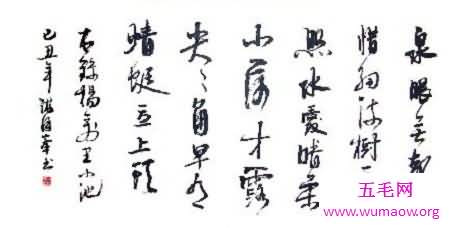 泉眼无声
惜细流树阴
照水爱晴柔
小荷才露
尖々角早有
蜻蜓立上头
右录杨万里小池
己丑年 书
五毛网
www.wumaow.org